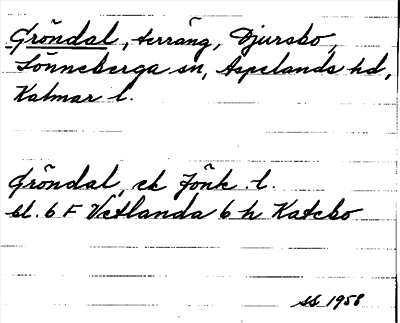 Gröndal, terräng, Djursbo,
Lönneberga sn, Aspelands hd,
Kalmar l.
Gröndal, ek Jönk. l.
bl. 6 F Vetlanda 6 h Katebo
SS 1958